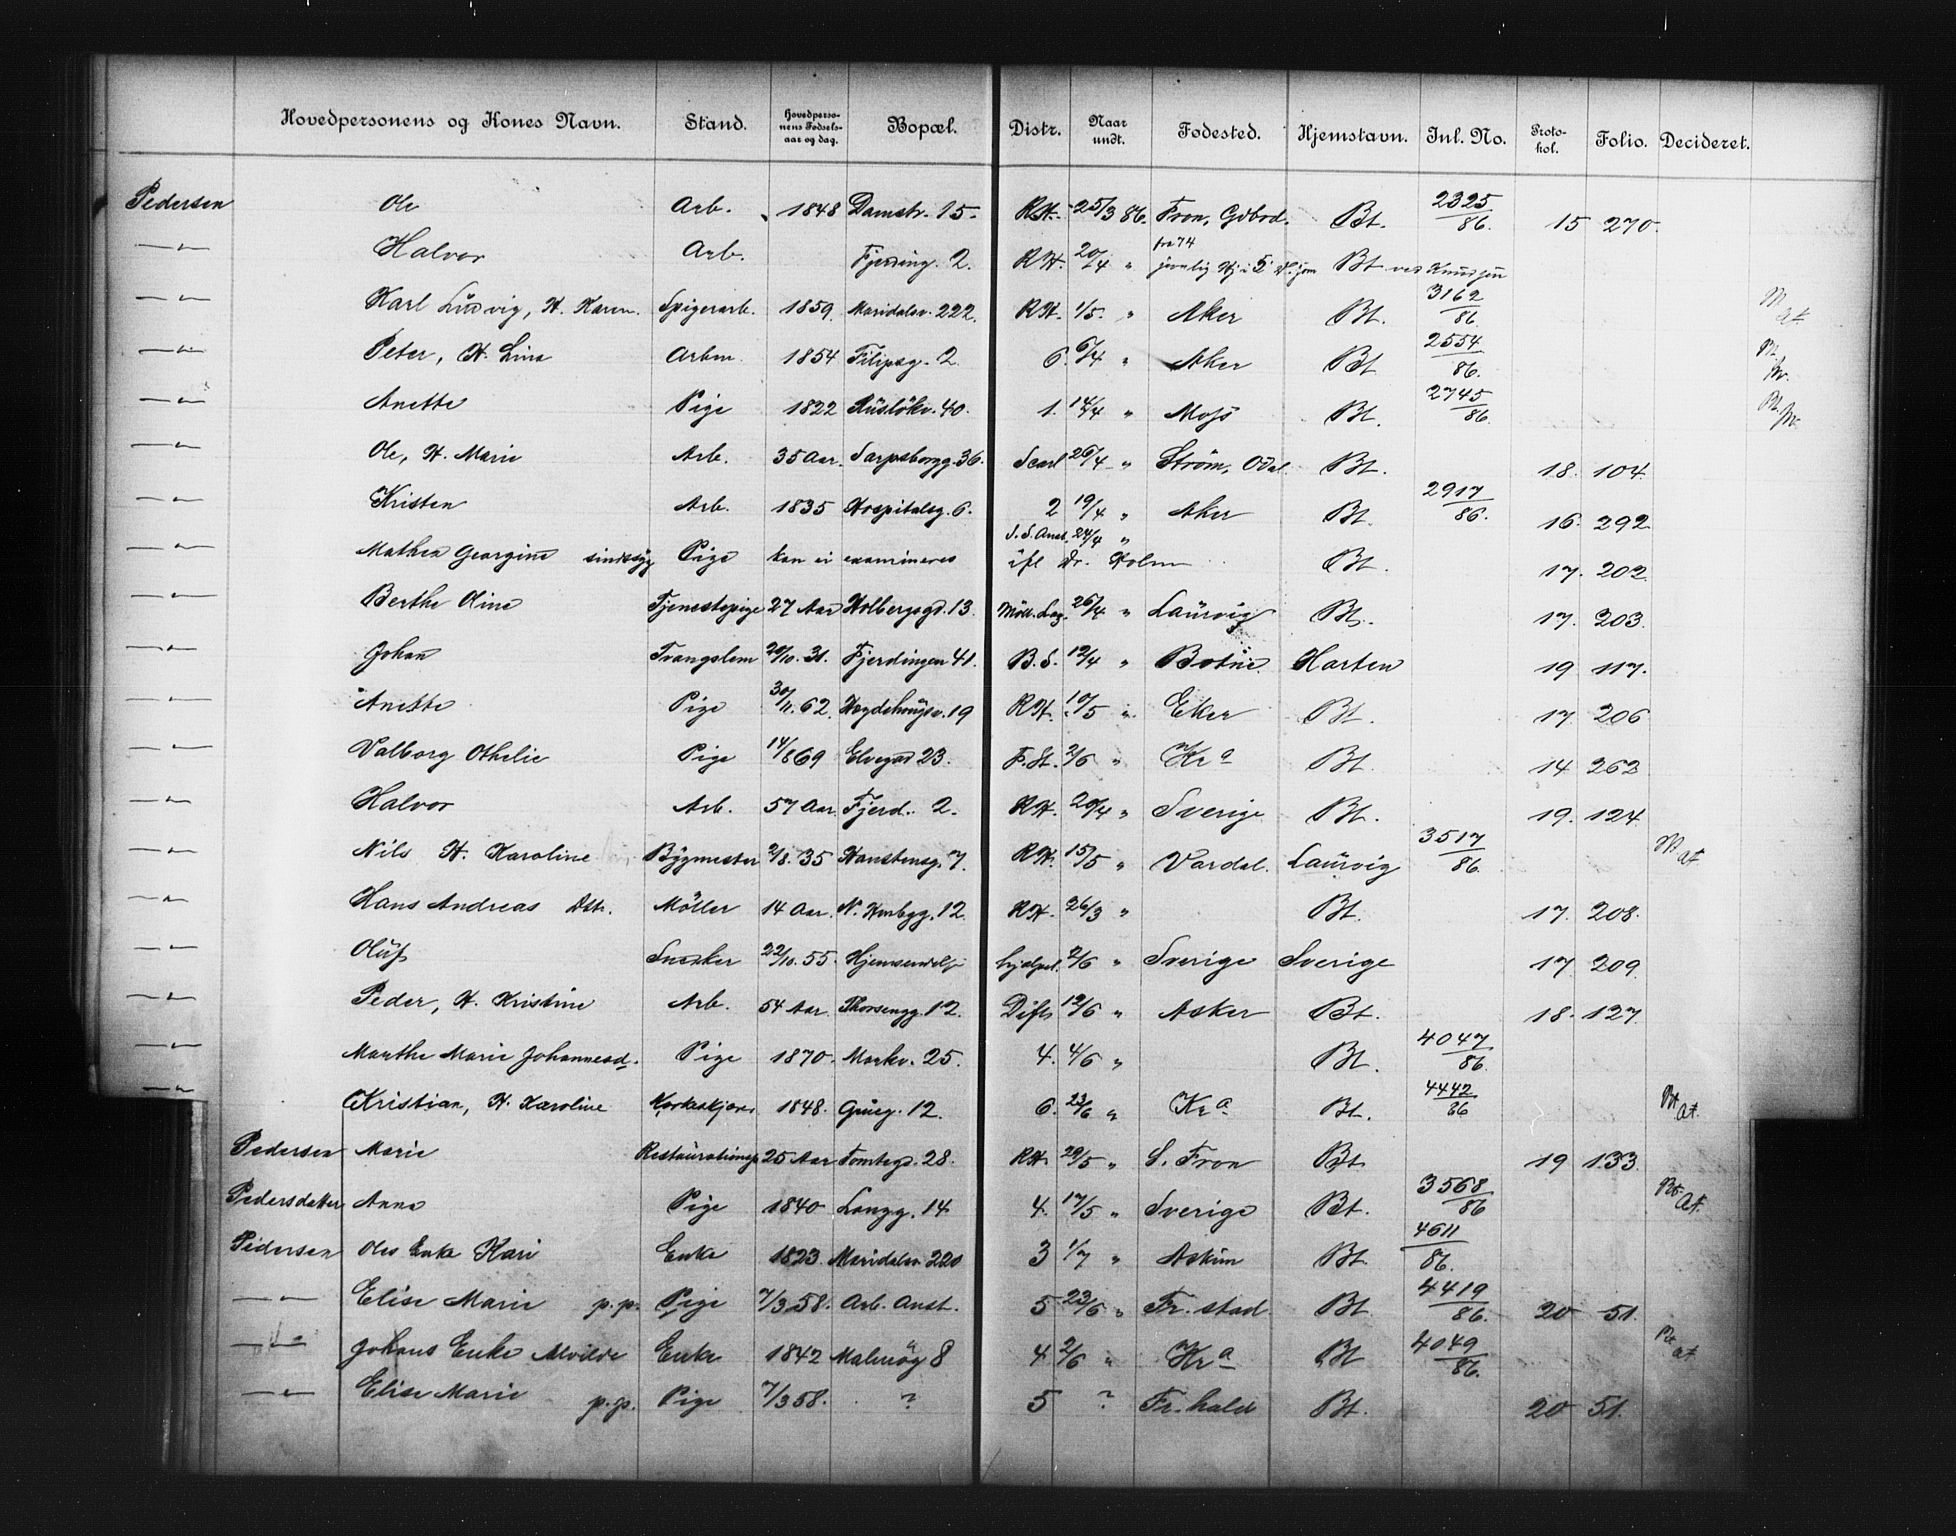 Hovedpersonens og Kones Navn. Stand. Hovedpersonens Fødselsaar og dag. Bopæl. Distr. Naar undt. Fødested. Hjemstavn. Inl. No. Protokol. Folio. Decideret.
Pedersen Ole Arb. 1848 Damstr. 15. RH. 25/3 86. Fron, Gdbrd. Bt. 2325/86. 15 270.
—"— Halvor Arb. Fjerding. 2. RH. 20/4 " fra 74 jevnlig Hj i 5 Bt
—"— Karl Ludvig, H. Karen. Spigerarb. 1859. Maridalsv. 222. RH. 1/5. " Aker Bt. 3162/86.
—"— Peter, H. Lina Arbm. 1854 Filipsg. 2. 6. 6/4 " Aker Bt 2554/86.
—"— Anette Pige 1822 Rusløkv. 40. 1. 14/4 " Moss Bt. 2745/86.
—"— Ole, H. Marie Arb. 35 Aar. Sarpsborgg. 36. 26/4 " Strøm, Odal. Bt. 18. 104.
—"— Kristen Arb. 1835 Hospitalsg. 6. 2 19/4 " Aker Bt. 2917/86. 16. 292.
—"— Mathea Georgine sindssyg Pige kan ei examineres S. S. Anst. 24/4 " ifl Dr. Holm Bt. 17. 202.
—"— Berthe Oline Tjenestepige 27 Aar Holbergsgd. 13. Møll. Laz. 26/4 " Laurvig Bt. 17. 203.
—"— Johan Tvangslem 20/10. 31. Fjerdingen 41. B. S. 12/4 " Botne. Horten 19 117.
—"— Anette Pige 30/11. 62. Hegdehaugsv. 19 RH. 10/5 " Eker Bt. 17. 206
—"— Valborg Othelie Pige 14/8 69 Elvegad 23. F. St. 2/6 " Kra Bt. 14 262
—"— Halvor Arb. 57 Aar. Fjerd. 2. RH. 20/4 " Sverige Bt. 19. 124.
—"— Nils H. Karoline Bygmester 2/8. 35 Hanstensg. 7. RH. 15/5 " Vardal. Laurvig 3517/86.
—"— Hans Andreas Dtt. Møller 14 Aar. N. 12. RH. 26/3 " Bt. 17. 208.
—"— Oluf Snedker 22/10. 55. 2/6 " Sverige Sverige 17 209.
—"— Peder, H. Kristine Arb. 54 Aar. Thorsengg. 12. 12/6 " Asker Bt. 18. 127.
—"— Marthe Marie Johannesd. Pige 1870. Markv. 25. 4. 4/6 " Bt. 4047/86.
—"— Kristian, H. Karoline Korkeskjærer 1848. Grueg. 12. 6. 23/6 " Kra Bt. 4442/86
Pedersen Marie Restaurationsp 25 Aar Tomtegd. 28. RH. 29/5 " S. Fron Bt. 19 133.
Pedersdatter Anna Pige 1840 Langg. 14 4. 17/5 " Sverige Bt. 3568/86 Bt. at.
Pedersen Oles Enke Kari Enke 1823. Maridalsv 220 3 1/7 " Askim Bt. 4611/86.
—"— Elise Marie p. p. Pige 7/3 58. Arb. Anst. 5 23/6 " Fr. stad Bt 4419/86. 20 51.
—"— Johans Enke Alvilde Enke 1842 Malmøg 8 4 2/6 " Kra Bt 4049/86. Bt at.
—"— Elise Marie p. p. Pige 7/3 58. ? 5 ? Fr. hald Bt. 20 51.